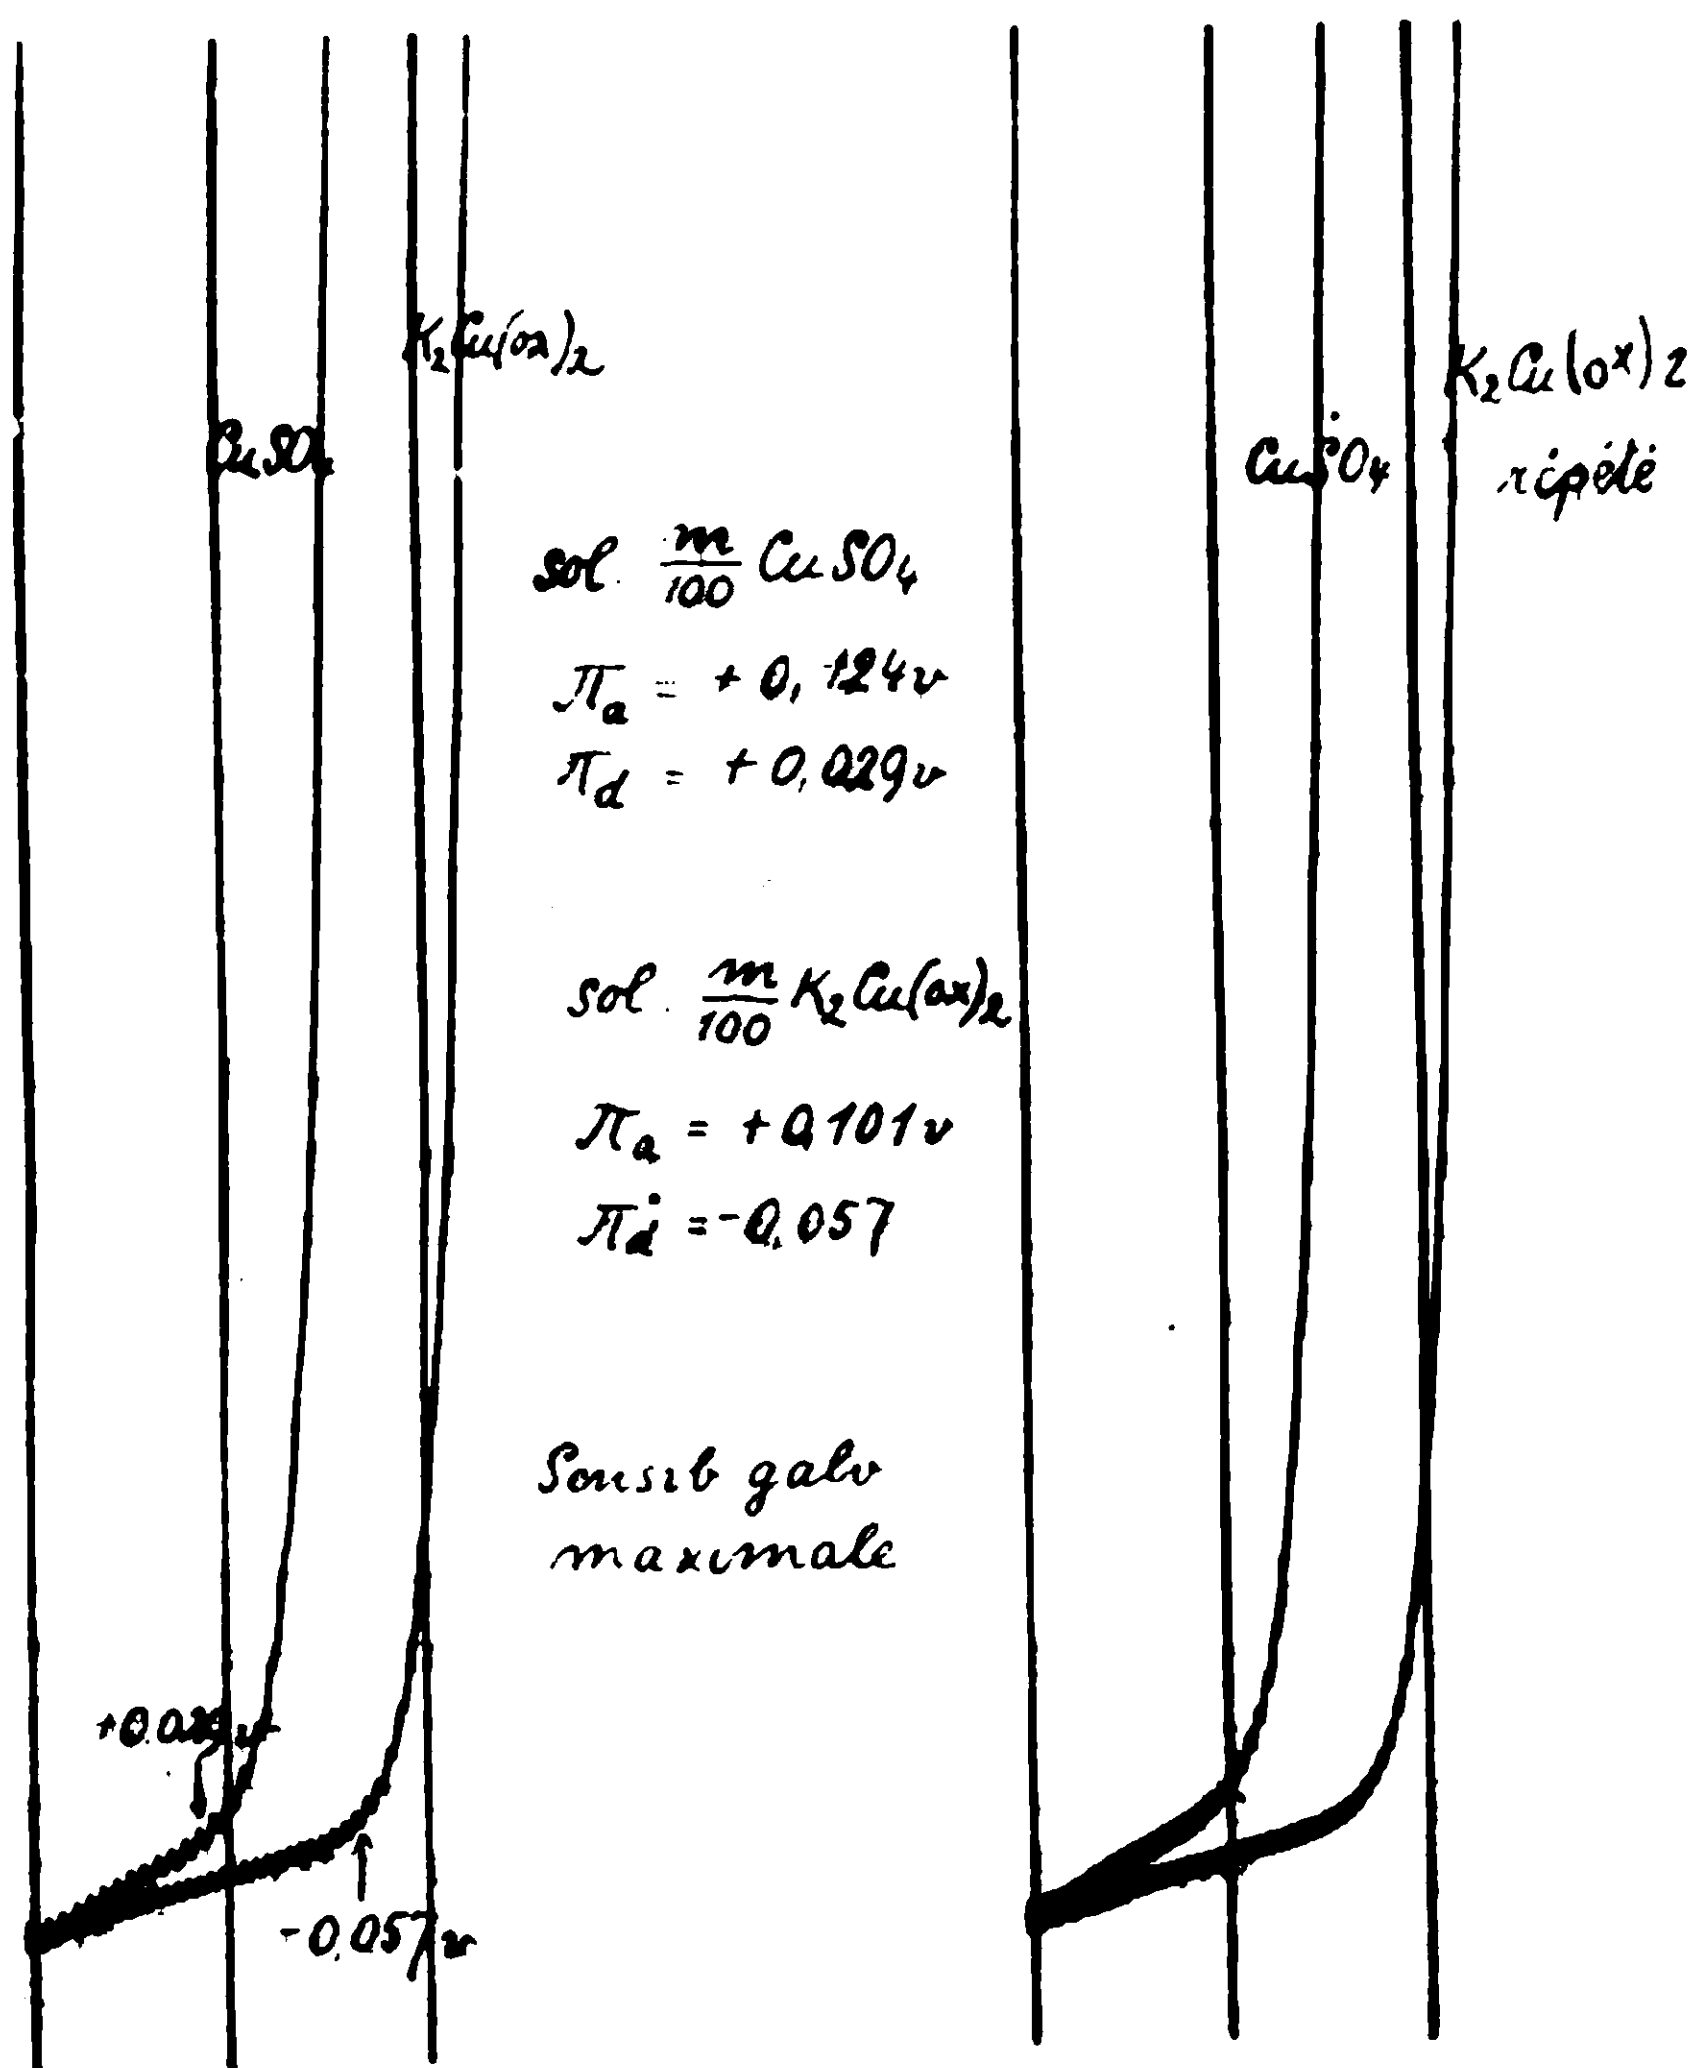 K₂Cu(ox)₂
CuSO₄
sol. m/100 CuSO₄
πa = + 0,124v
πd = + 0,029v
sol. m/100 K₂Cu(ox)₂
πa = +0,101v
πd = -0,057
Sensib galv
maximale
+0.029v
-0,057v
K₂Cu(ox)2
CuSO₄
répété